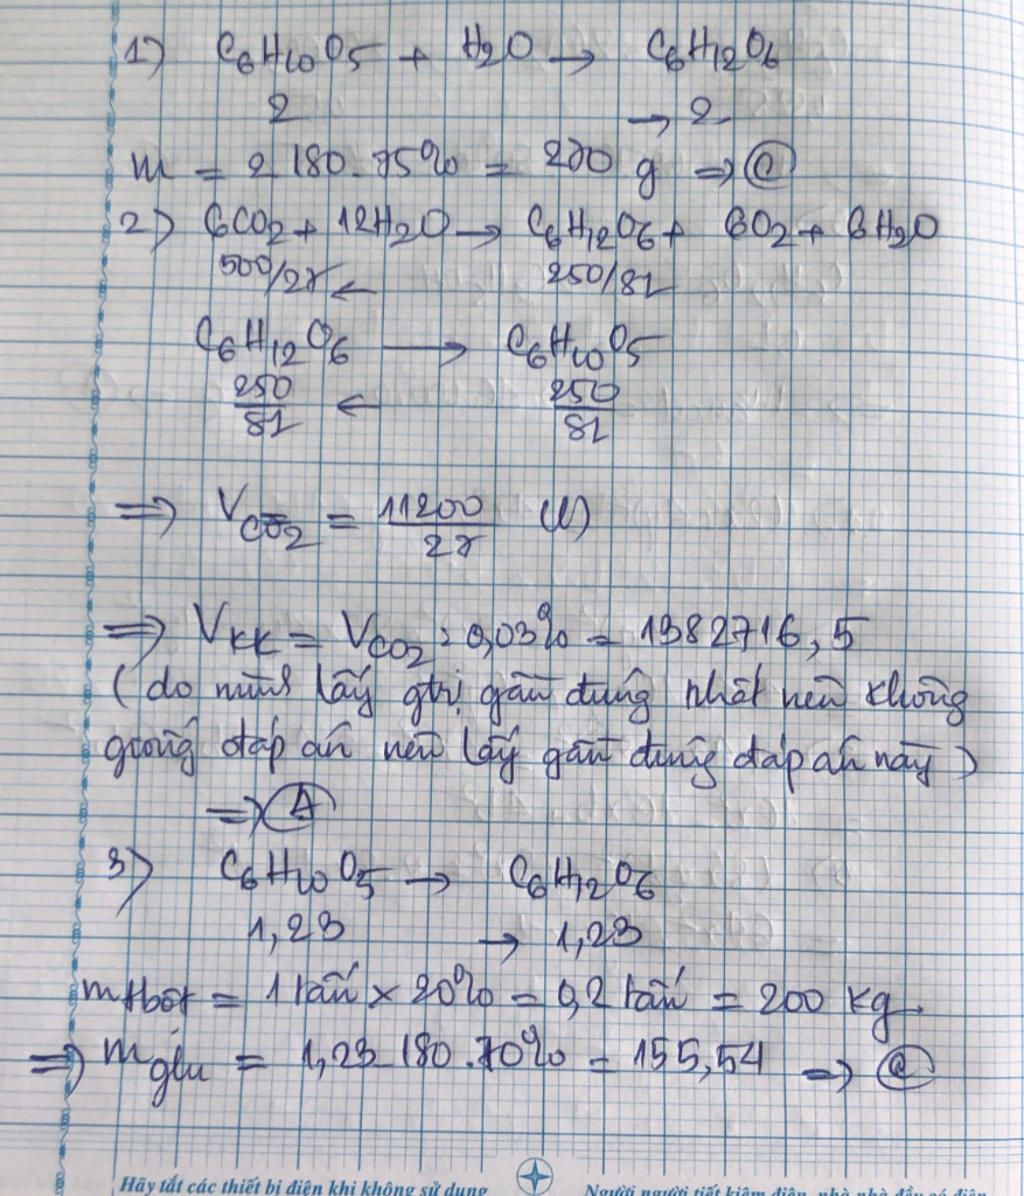 1) C6H10O5 + H2O → C6H12O6
2 → 2
m = 2.180.75% = 270 g ⇒ C
2) 6CO2 + 12H2O → C6H12O6 + 6O2 + 6H2O
500/27 ← 250/81
C6H12O6 → C6H10O5
250/81 ← 250/81
⇒ VCO2 = 11200/27 (l)
⇒ VKK = VCO2 : 0,03% = 1382716,5
(do mình lấy gtrị gần đúng nhất nên không
giống đáp án nên lấy gần đúng đáp án này)
⇒ A
3) C6H10O5 → C6H12O6
1,23 → 1,23
m tbột = 1 tấn × 20% = 0,2 tấn = 200 kg
⇒ m glu = 1,23.180.70% = 155,54 ⇒
Hãy tắt các thiết bị điện khi không sử dụng
Người người tiết kiệm điện, nhà nhà đều có điện